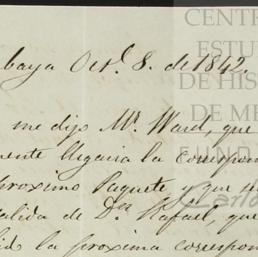 baya Oct.l 8. de 1842.
me dijo Mr. Ward, que
mente llegaria la correspon
proximo Paquete y que
alida de Dn Rafael, que
la proxima correspon
CENTR
ESTU
DE HIS
DE MÉ
FUND
Carlo